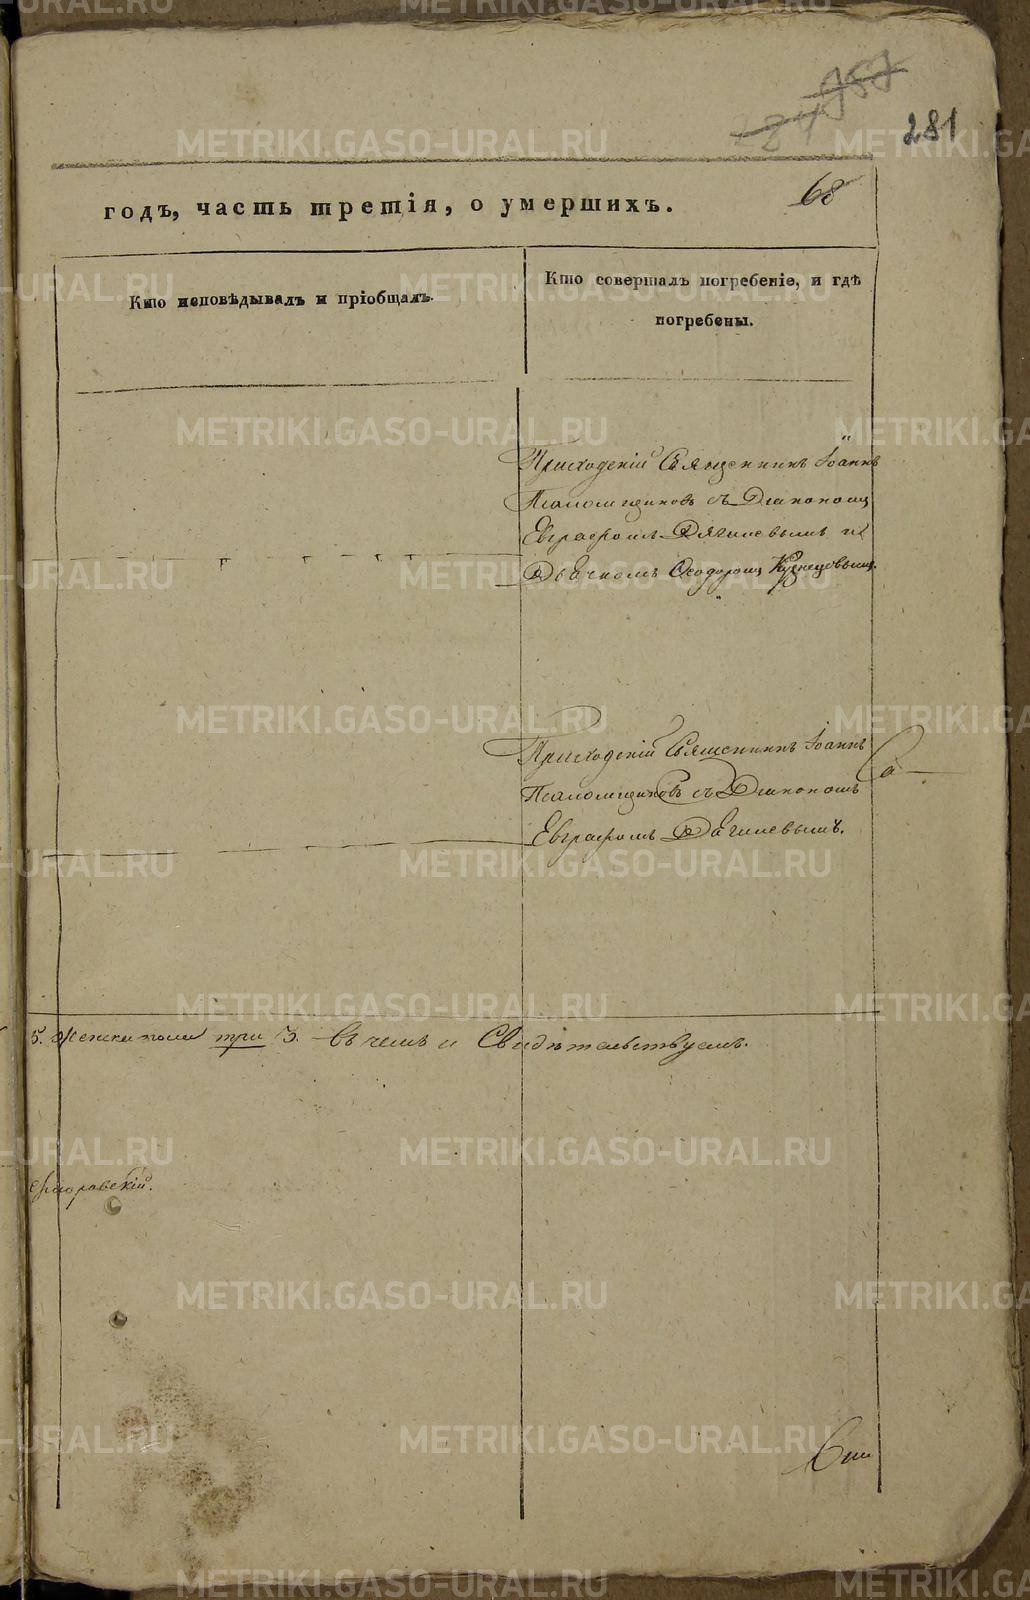 281
68
годъ, часть третія, о умершихъ.
Кто исповѣдывалъ и пріобщалъ.
Кто совершалъ погребеніе, и гдѣ
погребены.
Приходскій Священникъ Іоаннъ
Псаломщиковъ съ Діакономъ
Евграфомъ Дягилевымъ и
Дьячкомъ Ѳеодоромъ Кузнецовымъ.
Приходскій Священникъ Іоаннъ
Псаломщиковъ съ Діакономъ
Евграфомъ Дягилевымъ.
5. женска пола три 3. въ чемъ и Свидѣтельствуемъ.
METRIKI.GASO-URAL.RU